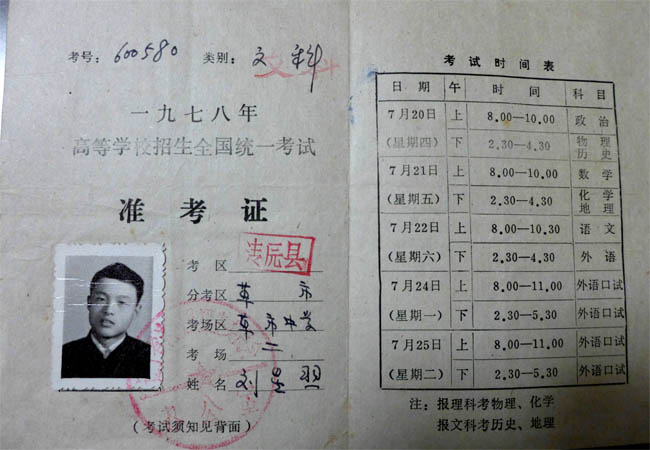 考号：600580 类别：文科
文科
一九七八年
高等学校招生全国统一考试
准考证
考区 清原县
分考区 草市
考场区 草市中学
考场 二
姓名 刘
（考试须知见背面）
办公室
考试时间表
日期 午 时间 科目
7月20日 上 8.00—10.00 政治
（星期四） 下 2.30—4.30 物理 历史
7月21日 上 8.00—10.00 数学
（星期五） 下 2.30—4.30 化学 地理
7月22日 上 8.00—10.30 语文
（星期六） 下 2.30—4.30 外语
7月24日 上 8.00—11.00 外语口试
（星期一） 下 2.30—5.30 外语口试
7月25日 上 8.00—11.00 外语口试
（星期二） 下 2.30—5.30 外语口试
注：报理科考物理、化学
报文科考历史、地理